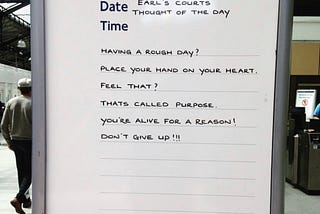 Date EARL'S COURTS
THOUGHT OF THE DAY
Time
HAVING A ROUGH DAY?
PLACE YOUR HAND ON YOUR HEART.
FEEL THAT?
THATS CALLED PURPOSE.
YOU'RE ALIVE FOR A REASON!
DON'T GIVE UP!!!